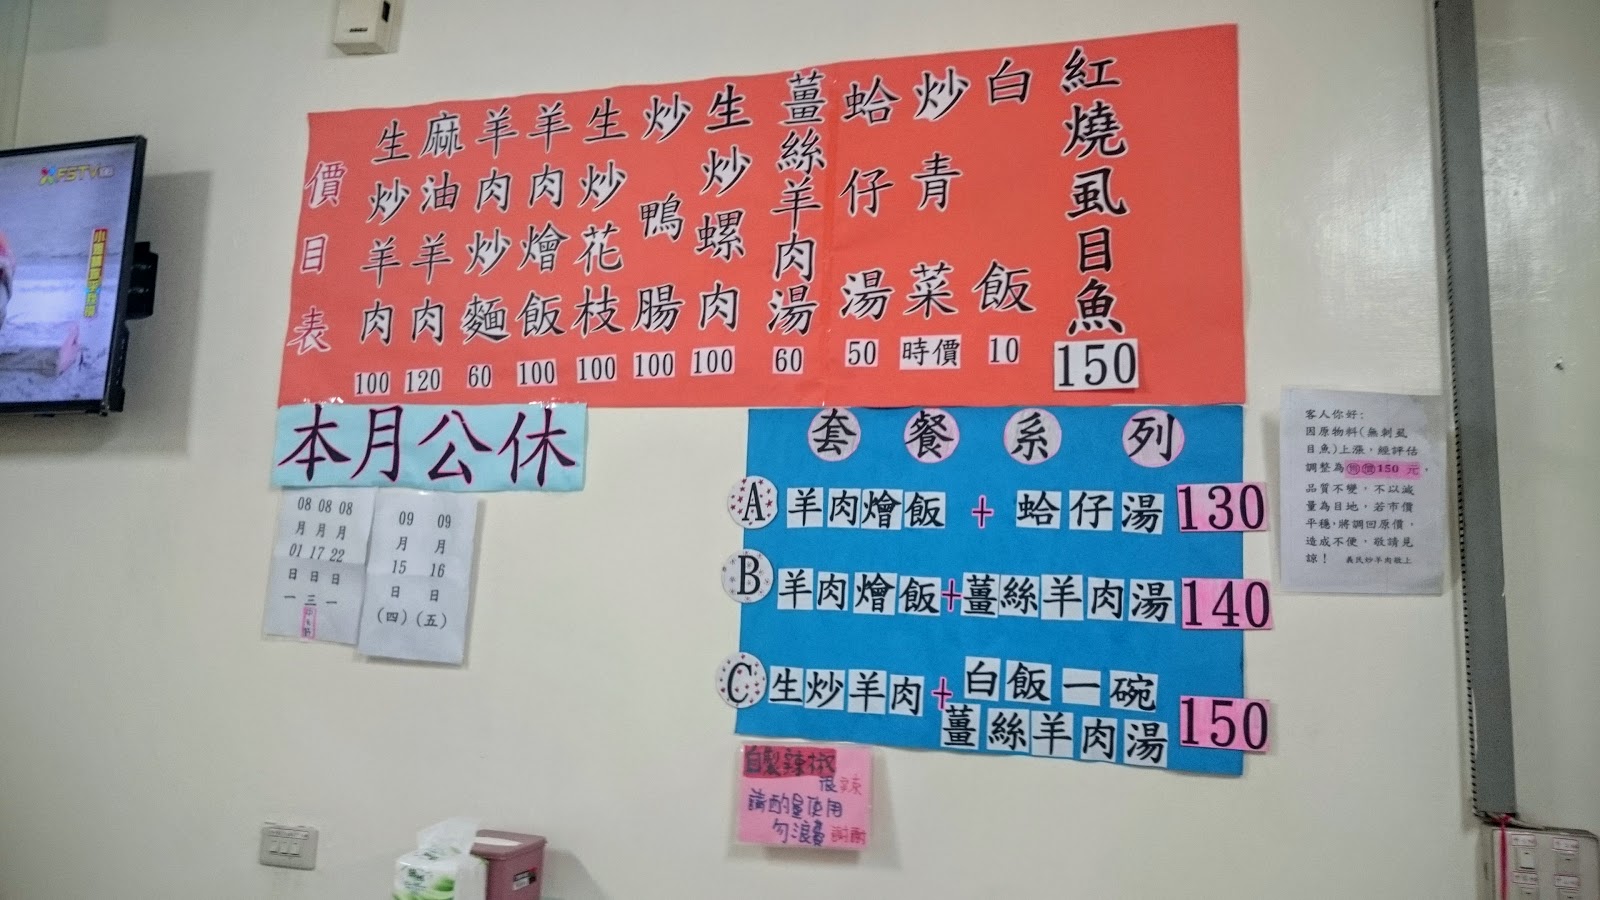 價目表
生炒羊肉 100
麻油羊肉 120
羊肉炒麵 60
羊肉燴飯 100
生炒花枝 100
炒鴨腸 100
生炒螺肉 100
薑絲羊肉湯 60
蛤仔湯 50
炒青菜 時價
白飯 10
紅燒虱目魚 150
本月公休
08月01日一
08月17日三
08月22日一
09月15日(四)
09月16日(五)
套餐系列
A 羊肉燴飯 + 蛤仔湯 130
B 羊肉燴飯+薑絲羊肉湯 140
C 生炒羊肉+白飯一碗
薑絲羊肉湯 150
客人你好:
因原物料(無刺虱
目魚)上漲,經評估
調整為特價150元,
品質不變,不以減
量為目地,若市價
平穩,將調回原價,
造成不便,敬請見
諒! 義民炒羊肉敬上
自製辣椒
很辣
請酌量使用
勿浪費 謝謝
FSTV